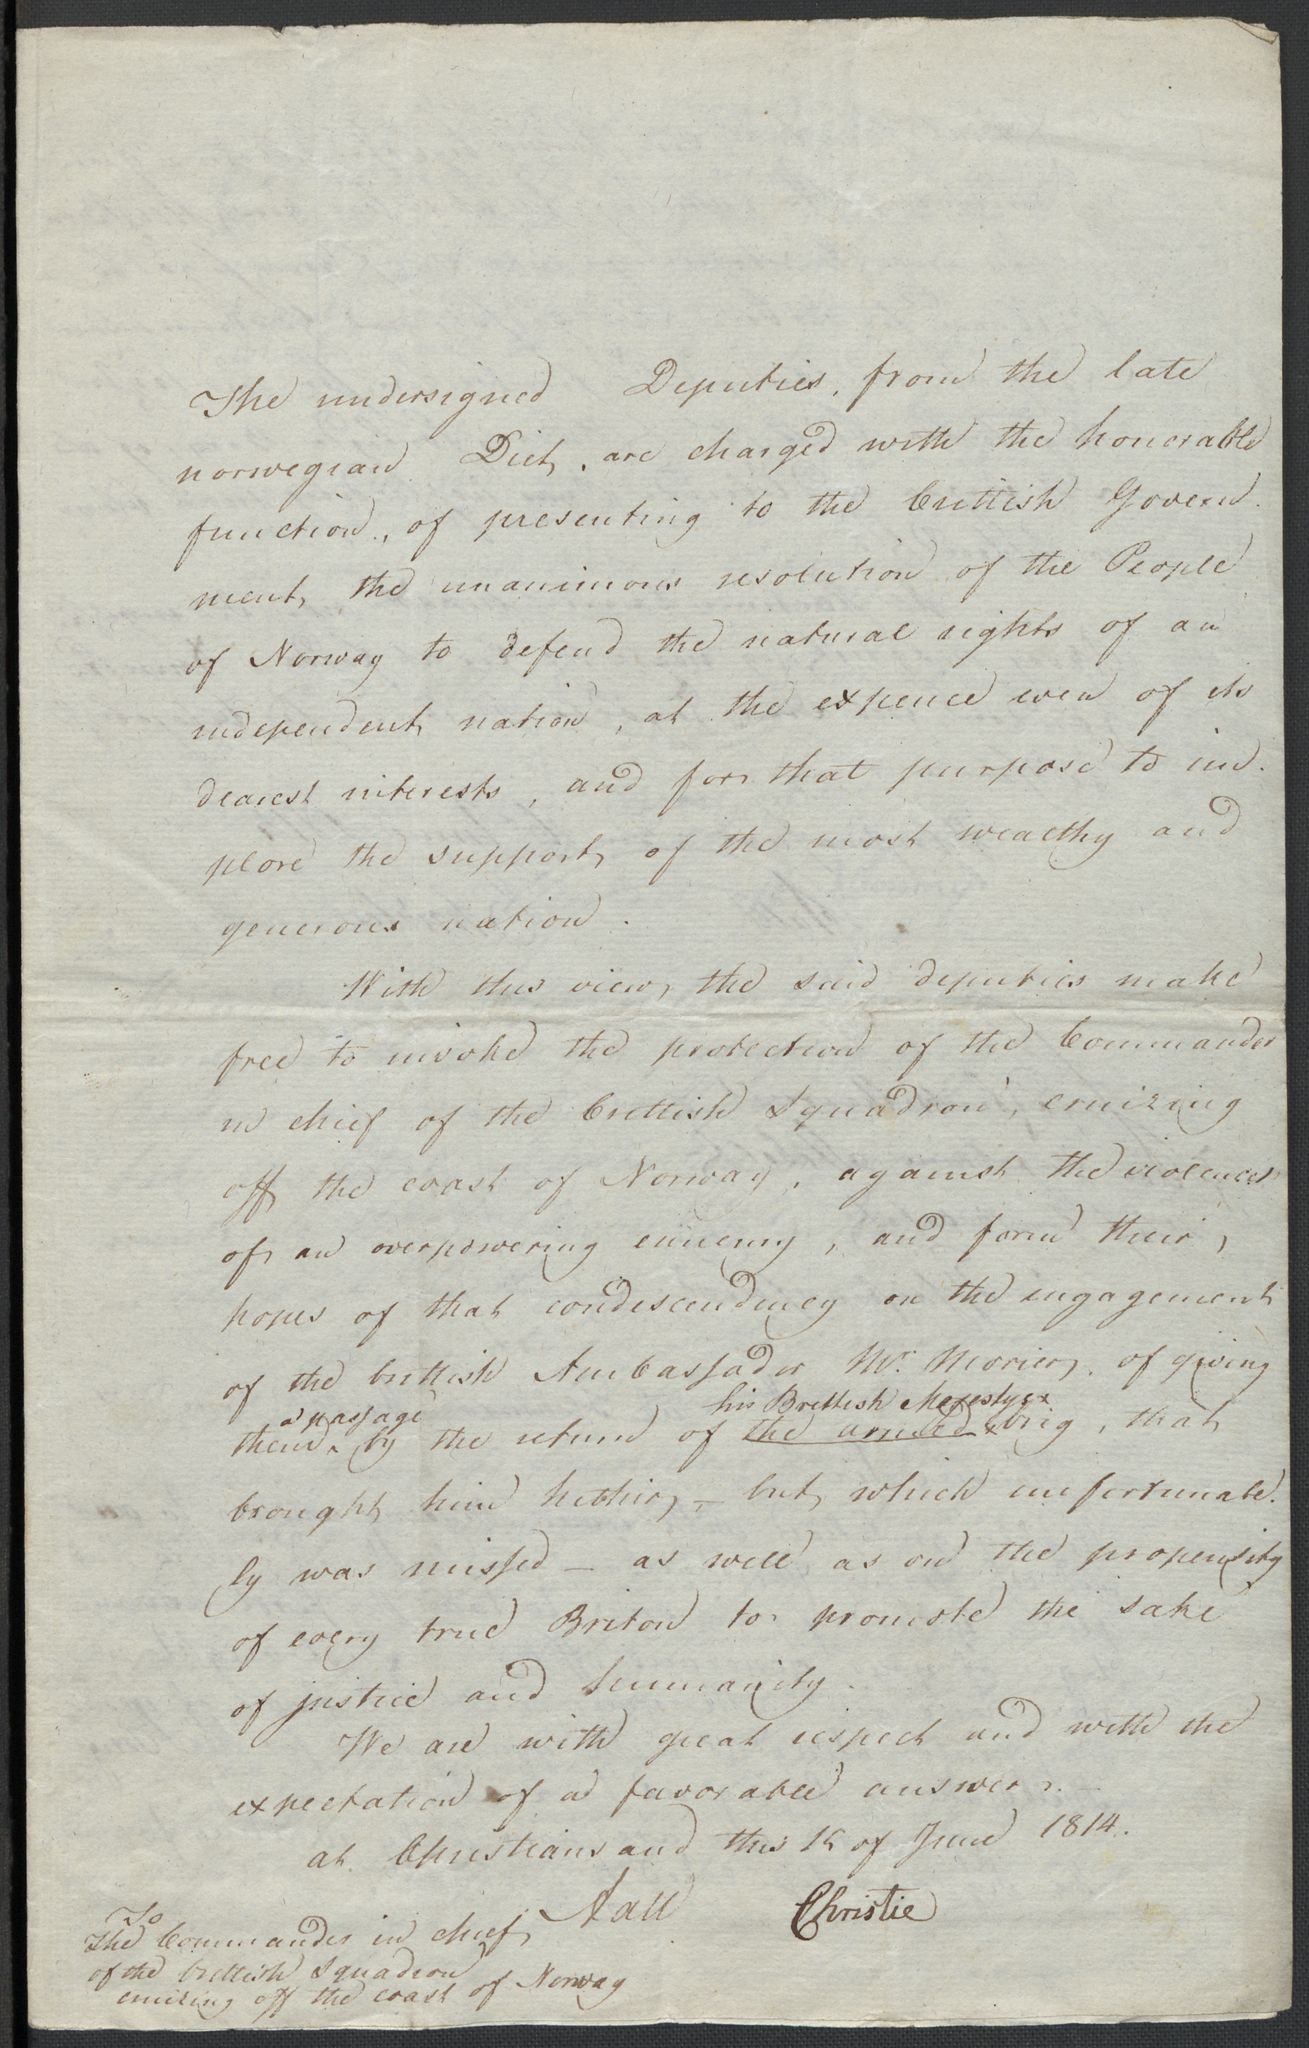 The undersigned Deputies, from the late
norwegian Diet, are charged with the honorable
function, of presenting to the brittish Govern-
ment, the unanimous resolution of the People
of Norway to defend the natural rights of an
independent nation, at the expence even of its
dearest interests, and for that purpose to im-
plore the support of the most wealthy and
generous nation.
With this view, the said deputies make
free to invoke the protection of the Commander
in chief of the brittish Squadron, cruizing
off the coast of Norway, against the violences
of an overpowering ennemy, and form their
hopes of that condescendency on the engagement
of the brittish Ambassador Mr. Morier, of giving
a passage his Brittish Majestys
them by the return of the armed brig, that
brought him hither, – but, which unfortunate-
ly was missed – as well as on the propensity
of every true Briton to promote the sake
of justice and humanity.
We are with great respect and with the
expectation of a favorable answer.
at Christiansand this of June 1814.
Aall Christie
To
The Commander in chief
of the brittish Squadron
cruizing off the coast of Norway